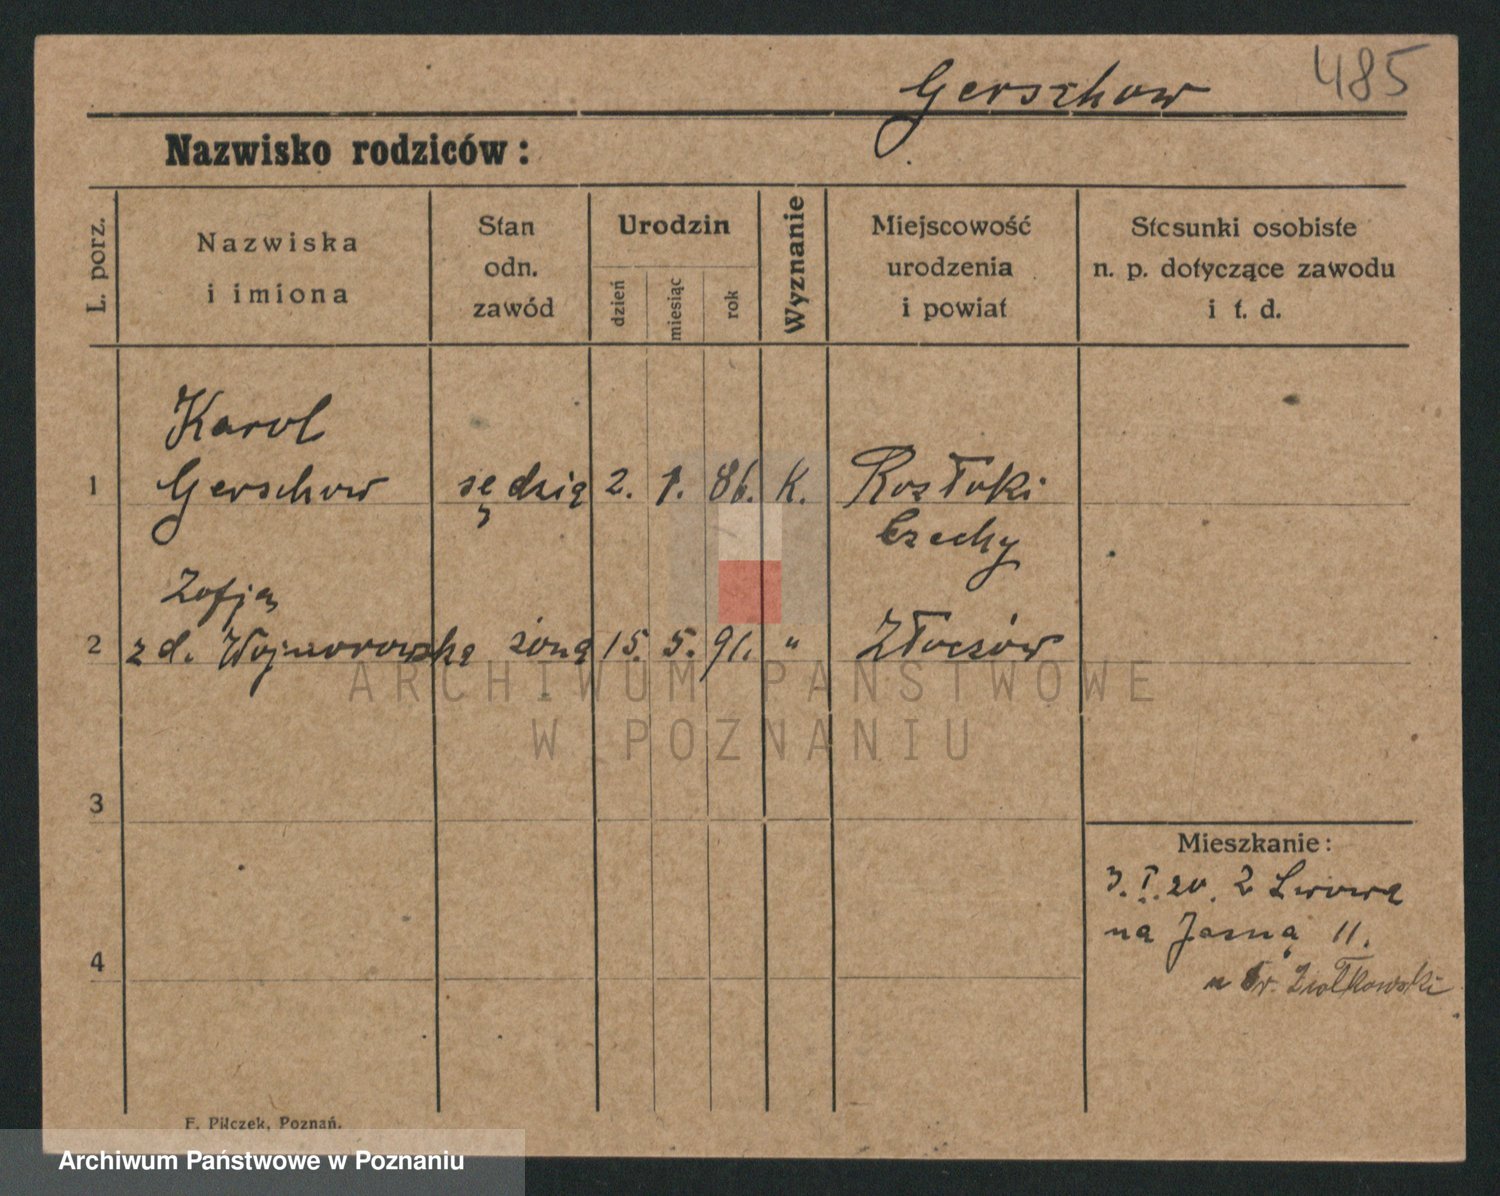 Gerschow 485
Nazwisko rodziców:
L. porz.
Nazwiska
i imiona
Stan
odn.
zawód
Urodzin
dzień
miesiąc
rok
Wyznanie
Miejscowość
urodzenia
i powiat
Stosunki osobiste
n. p. dotyczące zawodu
i t. d.
Karol
1 Gerschow sędzia 2. 1. 86. K.
Czechy
Zofja
2 z d. żona 15. 5. 91. " Złoczów
3
Mieszkanie:
I. 20. Z Lwowa
na Jasną 11.
Ziołkowski
4
F. Pilczek, Poznań.
ARCHIWUM PAŃSTWOWE
W POZNANIU
Archiwum Państwowe w Poznaniu